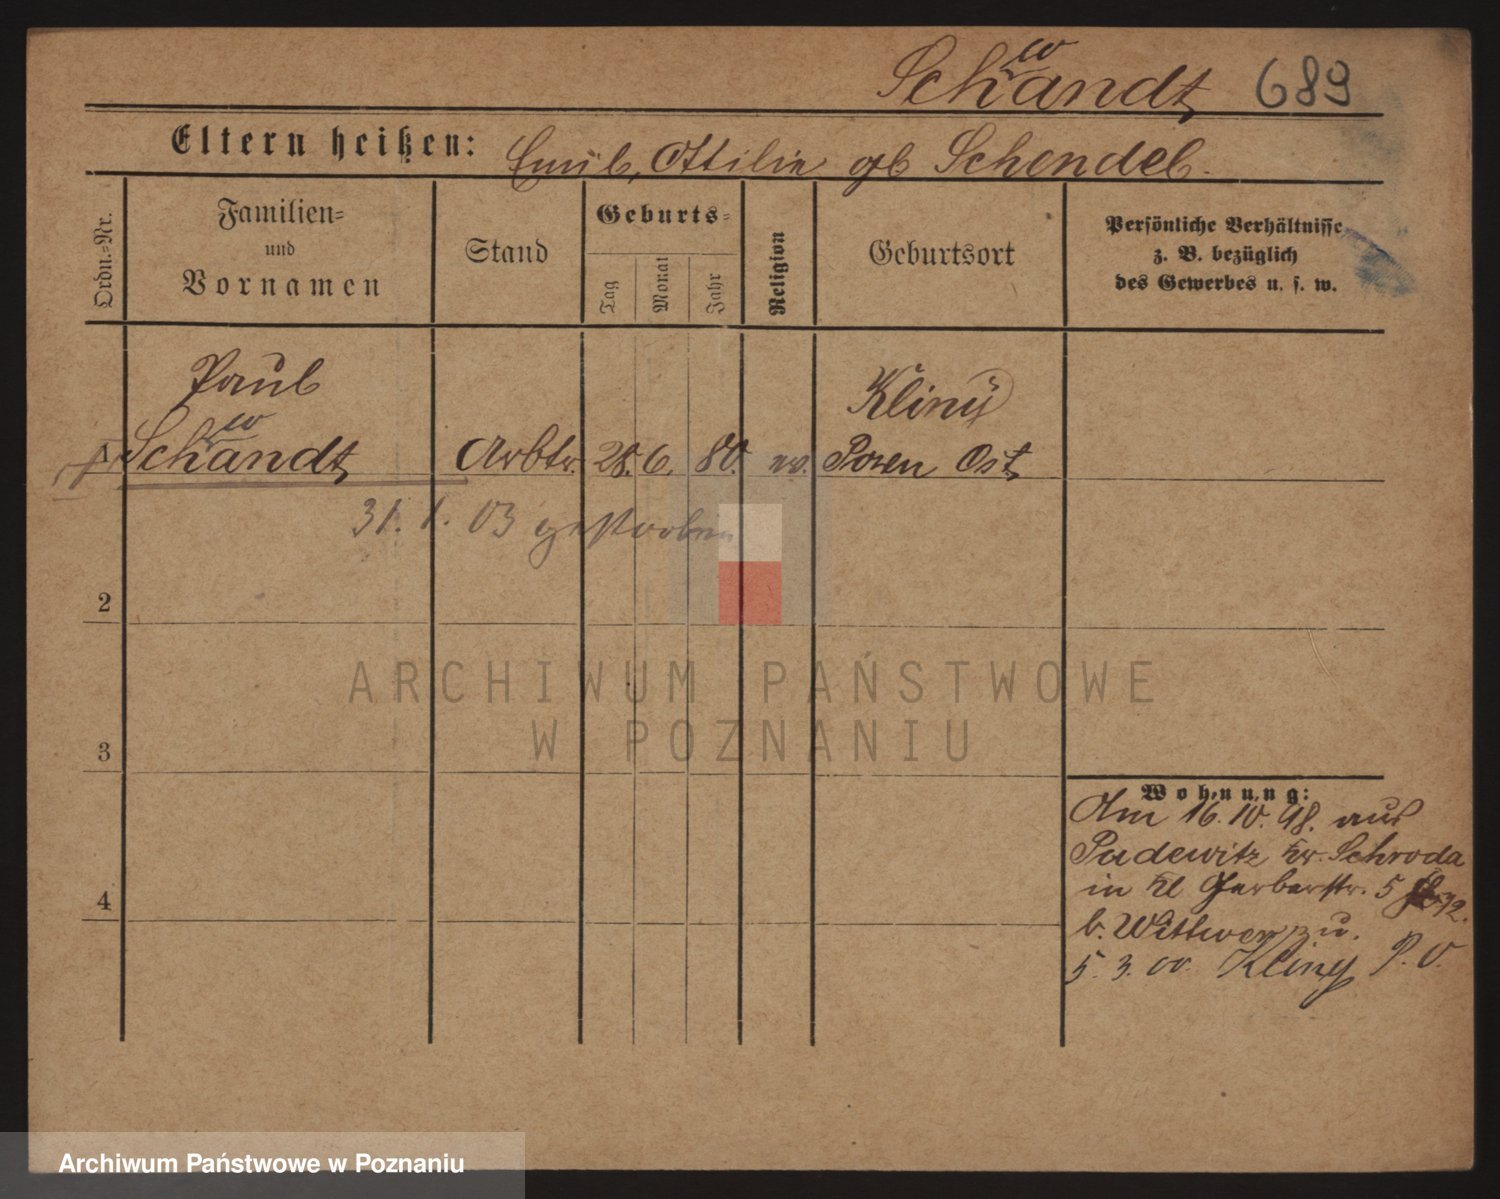 Schwandt 689
Eltern heißen: Emil, Ottilie gb Schendel.
Ordn.=Nr.
Familien=
und
Vornamen
Stand
Geburts=
Tag
Monat
Jahr
Religion
Geburtsort
Persönliche Verhältnisse
z. B. bezüglich
des Gewerbes u. s. w.
Paul
Schwandt
Arbtr. 28. 6. 80. ev.
Kliny
Posen Ost
31. 1. 03 gestorben
2
ARCHIWUM PAŃSTWOWE
W POZNANIU
3
Wohnung:
Am 16.10.98. aus
Padewitz Kr. Schroda
in Kl Gerberstr. 5
4
b. Wittwer zu.
5. 3. 00 Kliny P. O.
Archiwum Państwowe w Poznaniu